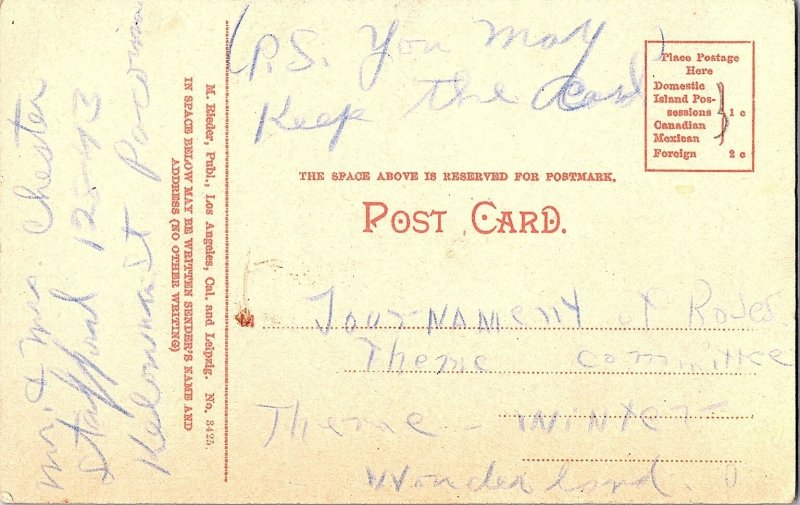 (P.S. You may
Keep the card)
Place Postage
Here
Domestic
Island Pos-
sessions
Canadian
Mexican
1 c
Foreign 2 c
THE SPACE ABOVE IS RESERVED FOR POSTMARK.
POST CARD.
Tournament of Roses
Theme committee
Theme - Winter
Wonderland.
M. Rieder, Publ., Los Angeles, Cal. and Leipzig. No. 3425.
IN SPACE BELOW MAY BE WRITTEN SENDER'S NAME AND
ADDRESS (NO OTHER WRITING)
Mr. & Mrs. Chester
Stafford 12543
Pacoima